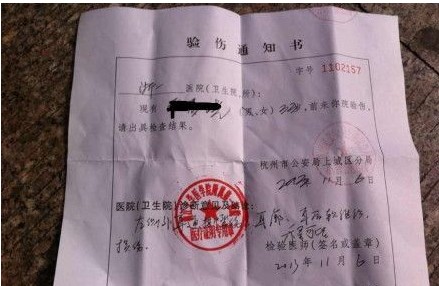 验伤通知书
字号 1102157
浙一 医院(卫生院、所):
现有 (男、女) 前来你院验伤,
请出具检查结果。
杭州市公安局上城区分局
2013年11月6日
医院(卫生院)诊断意见及结论:
左侧外耳道 耳廓、耳后软组织
挫伤。
医疗证明专用章
检验医师(签名或盖章)
2013年11月6日